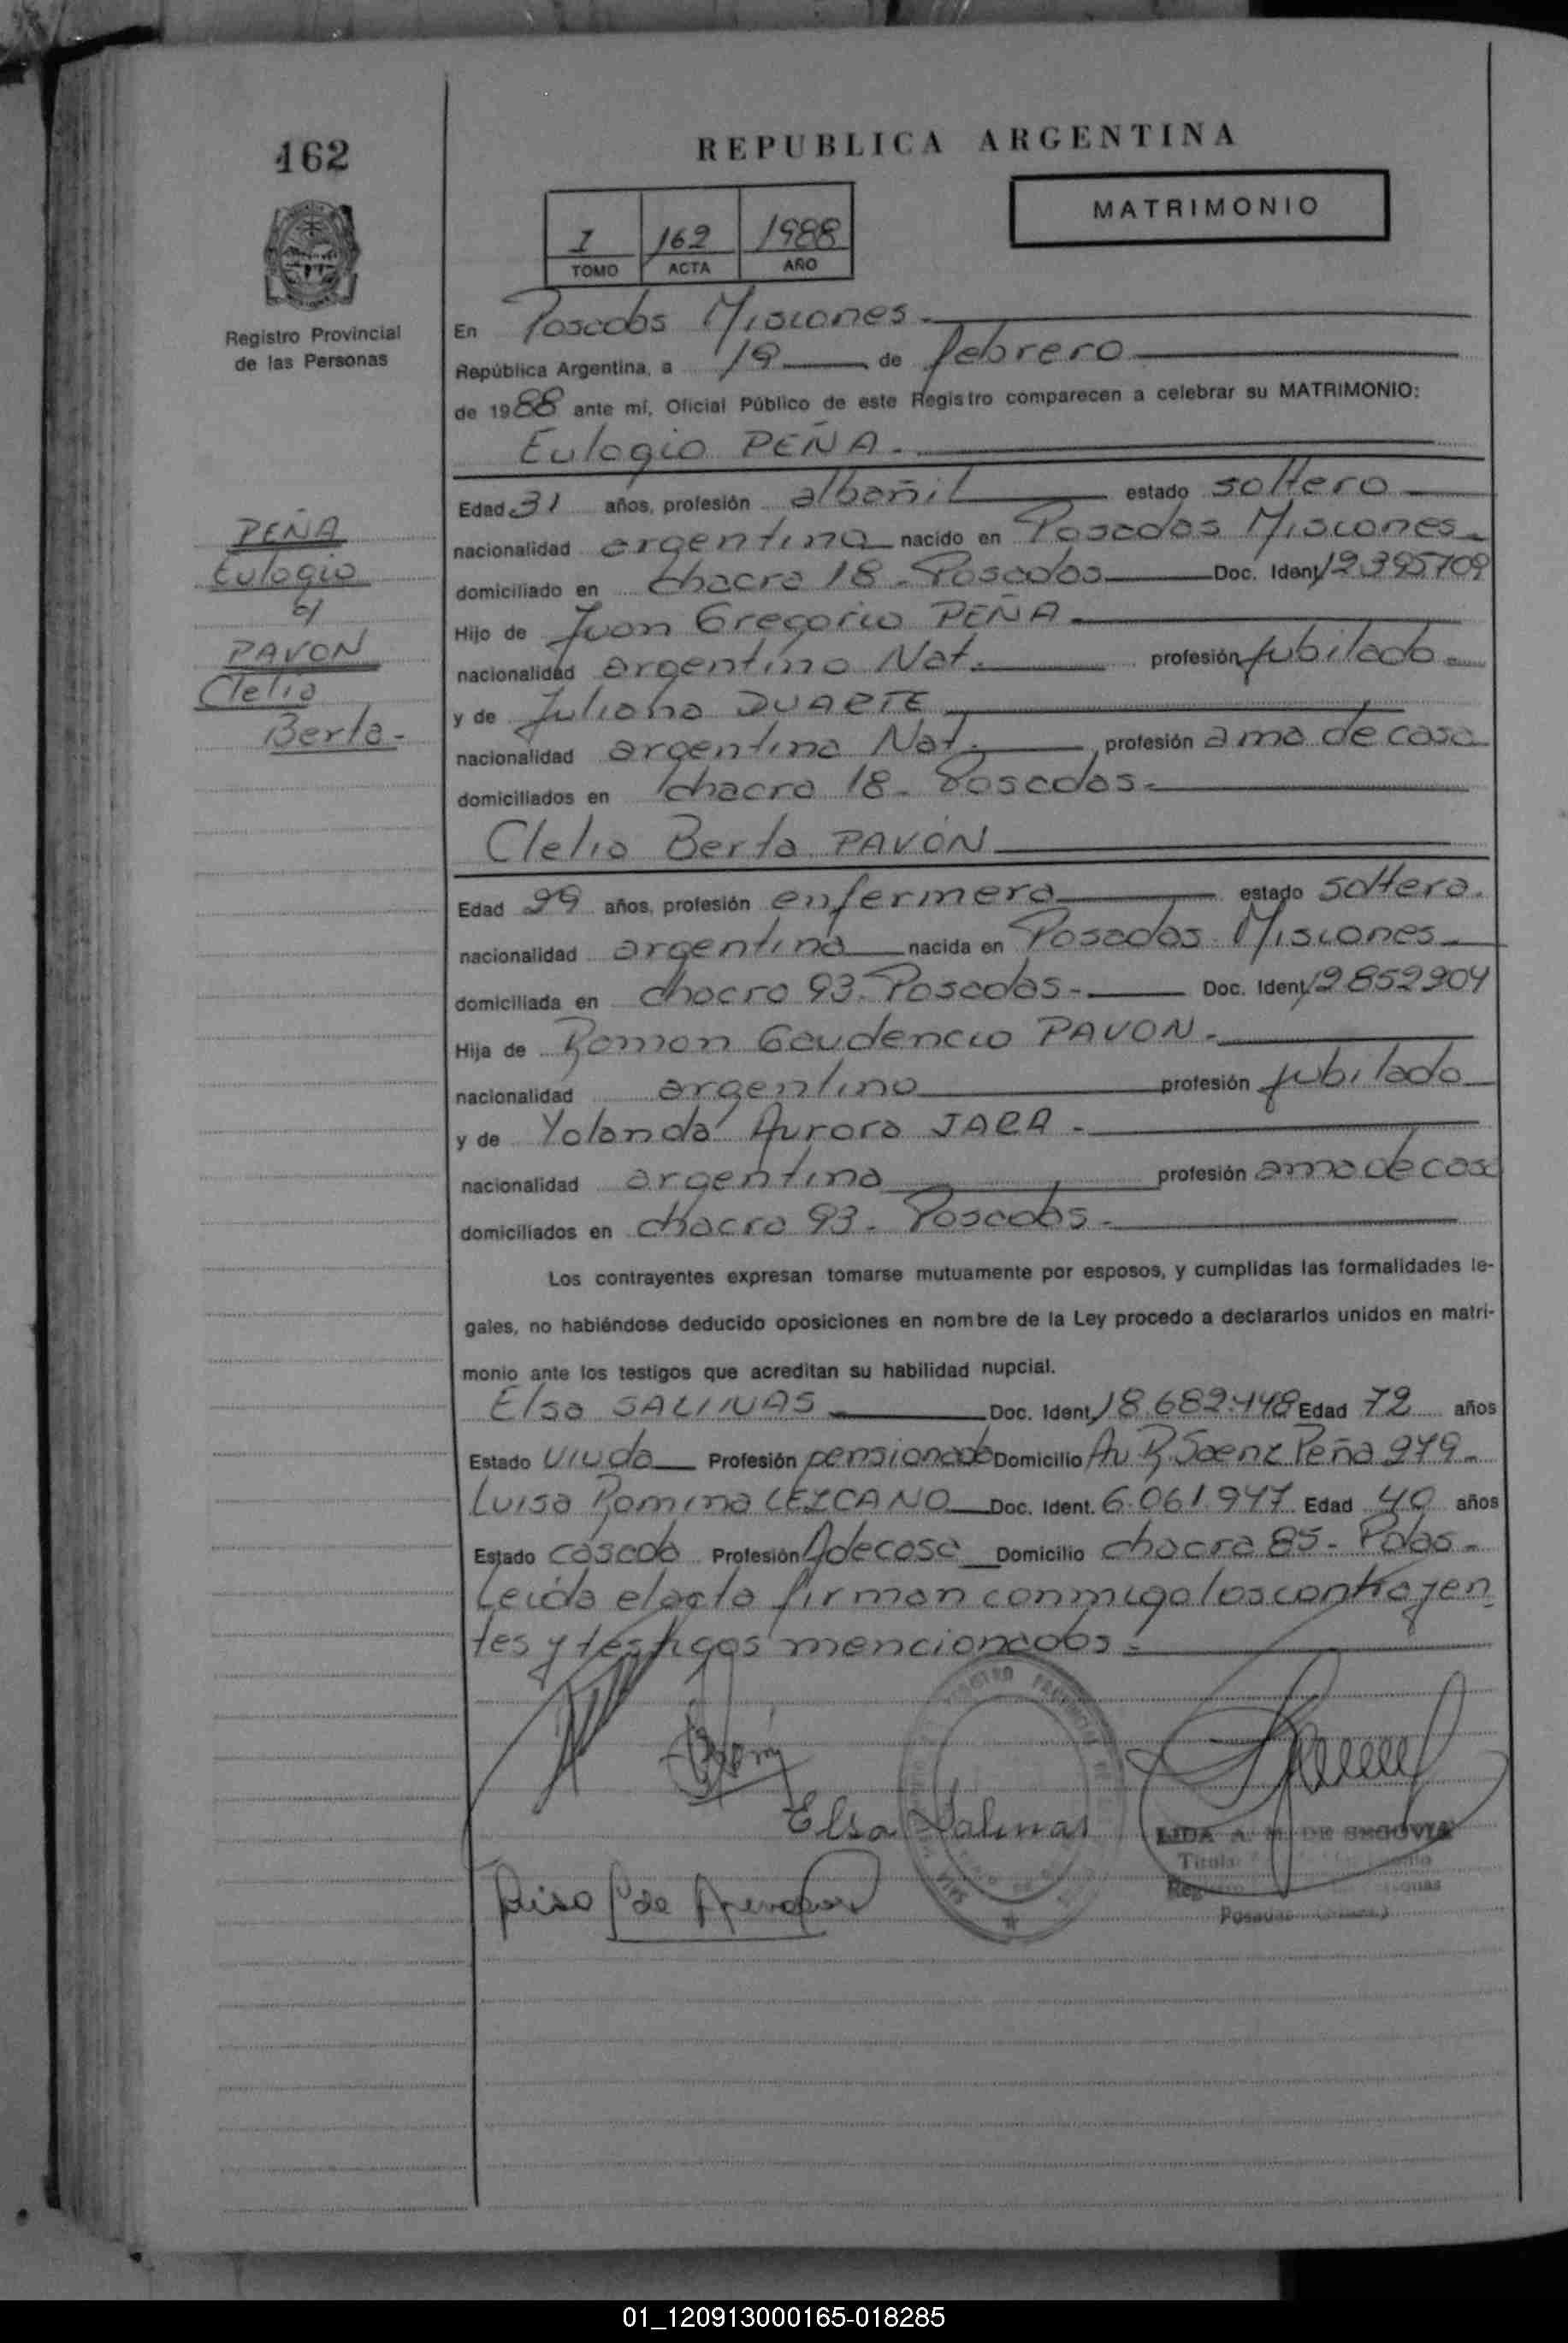 162
REPUBLICA ARGENTINA
MATRIMONIO
I 162 1988
TOMO ACTA AÑO
Registro Provincial
de las Personas
En Posadas Misiones.
República Argentina, a 19 de febrero
de 1988 ante mí, Oficial Público de este Registro comparecen a celebrar su MATRIMONIO:
Eulogio PEÑA.
Edad 31 años, profesión albañil estado soltero
nacionalidad argentina nacido en Posadas Misiones.
domiciliado en chacra 18 - Posadas Doc. Ident. 12.395709
Hijo de Juan Gregorio PEÑA.
nacionalidad argentino Nat. profesión jubilado.
y de Juliana DUARTE
nacionalidad argentina Nat. profesión ama de casa
domiciliados en chacra 18 - Posadas.
PEÑA
Eulogio
c/
PAVON
Clelia
Berta-
Clelia Berta PAVÓN
Edad 29 años, profesión enfermera estado soltera.
nacionalidad argentina nacida en Posadas Misiones.
domiciliada en chacra 93. Posadas- Doc. Ident. 12852904
Hija de Ramon Gaudencio PAVON.
nacionalidad argentino profesión jubilado
y de Yolanda Aurora JARA -
nacionalidad argentina profesión ama de casa
domiciliados en chacra 93 - Posadas.
Los contrayentes expresan tomarse mutuamente por esposos, y cumplidas las formalidades le-
gales, no habiéndose deducido oposiciones en nombre de la Ley procedo a declararlos unidos en matri-
monio ante los testigos que acreditan su habilidad nupcial.
Elsa SALINAS Doc. Ident. 18.682.448 Edad 72 años
Estado viuda Profesión pensionada Domicilio Av R. Saenz Peña 279.
Luisa Romina LEZCANO Doc. Ident. 6.061.947 Edad 40 años
Estado casada Profesión A de casa Domicilio chacra 85 - Pdas -
Leida el acta firman conmigo los contrayen
tes y testigos mencionados.
Elsa Salinas
LIDA A. M. DE SEGOVIA
Posadas
01_120913000165-018285